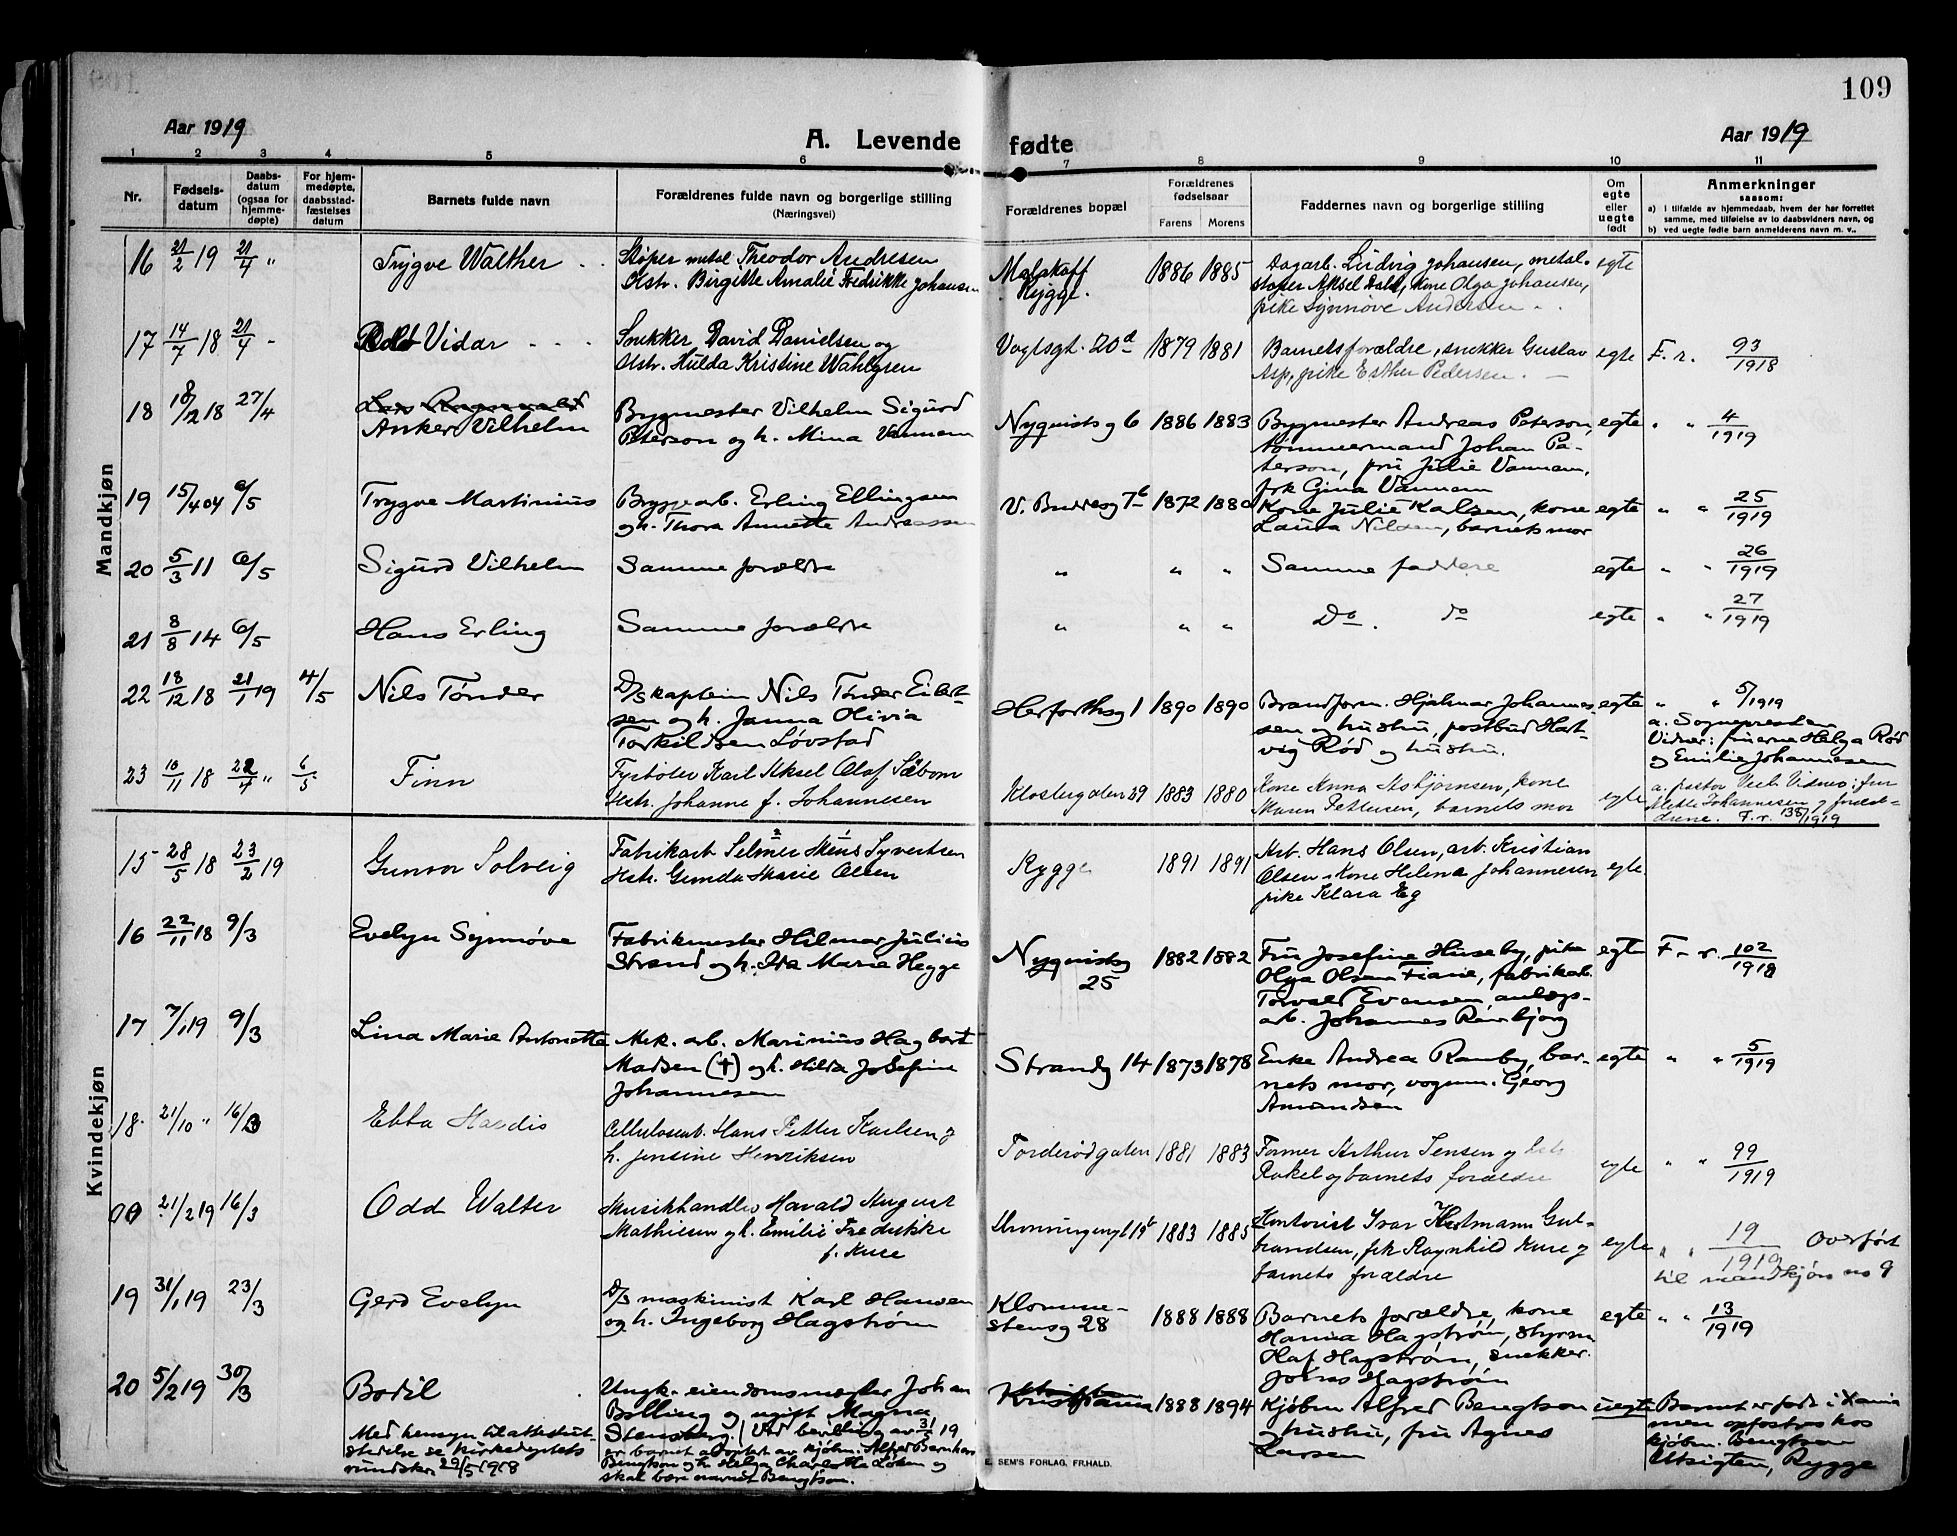 109
Aar 1919
A. Levende fødte
Aar 1919
1 2 3 4 5 6 7 8 9 10 11
Nr.
Fødsels-
datum
Daabs-
datum
(ogsaa for
hjemme-
døpte)
For hjem-
medøpte,
daabsstad-
fæstelses
datum
Barnets fulde navn
Forældrenes fulde navn og borgerlige stilling
(Næringsvei)
Forældrenes bopæl
Forældrenes
fødselsaar
Farens Morens
Faddernes navn og borgerlige stilling
Om
egte
eller
uegte
født
Anmerkninger
saasom:
a) i tilfælde av hjemmedaab, hvem der har forrettet
samme, med tilføielse av to daabsvidners navn, og
b) ved uegte fødte barn anmelderens navn m. v.,
Mandkjøn
16 21/2 19 21/4 " Trygve Walther
Støper metal Theodor Andresen
Hstr. Birgitte Amalie Fredrikke Johansen
Malakoff
Rygge.
1886 1885
Dagarb. Ludvig Johansen, metal-
støper Aksel Dahl, kone Olga Johansen,
pike Synnøve Andersen
egte
17 14/7 18 21/4 - Vidar
Snekker David Danielsen og
Hstr. Hulda Kristine Wahlgren
Voglsgt. 20d 1879 1881
Barnets forældre, snekker Gustav
Asp, pike Esther Pedersen.
egte F. r. 93/1918
18 18/12 18 27/4
Anker Vilhelm
Bygmester Vilhelm Sigurd
Peterson og h. Mina Vannem
Nyquistsg 6 1886 1883
Bygmester Andreas Peterson,
tømmermand Johan Pe-
terson, fru Julie Vannem,
frk Gina Vannem
egte " " 4/1919
19 15/4 04 6/5 Trygve Martinius
Bryggearb. Erling Ellingsen
og h. Thora Annette Andreassen
V. Bredesg 7b 1872 1880
Kone Julie Karlsen, kone
Laura Nilsen, barnets mor
egte " " 25/1919
20 5/3 11 6/5 Sigurd Vilhelm Samme forældre
" " " Samme faddere egte " " 26/1919
21 8/8 14 6/5 Hans Erling Samme forældre
" " " Do. do egte " " 27/1919
22 18/12 18 21/1 19 4/5 Nils Tønder
D/S kaptein Nils Tønder Eilert-
sen og h. Janna Olivia
Torkildsen Løvstad
Herforthsg 1 1890 1890
Brandform. Hjalmar Johannes-
sen og hustru, postbud Hart-
vig Rød og hustru.
egte " " 5/1919
a. Sognepresten
Vidner: fruerne Helga Rød
og Emilie Johannesen
23 10/11 18 22/4 " 6/5 Finn
Fyrbøter Karl Aksel Olaf Säbom
Hstr. Johanne f. Johannesen
Klostergaten 29 1883 1880
Kone Anna Asbjørnsen, kone
Maren Pettersen, barnets mor
egte
a. pastor Vidner: fru
Johannesen og foræl-
drene. F. r. 135/1919
Kvindekjøn
15 28/5 18 23/2 19 Gunvor Solveig
Fabrikarb Selmer Mens Syvertsen
Hstr. Gunda Marie Olsen
Rygge 1891 1891
Arb. Hans Olsen, arb. Kristian
Olsen, Kone Helene Johannesen
pike Klara Eg
egte
16 22/11 18 9/3 Evelyn Synnøve
Fabrikmester Hilmar Julius
Strand og h. Ida Marie Hegge
Nyquistsg
25
1882 1882
Fru Josefine Huseby, pike
Olga Olsen Fiane, fabrikarb.
Torvald Evensen, anlægs-
arb. Johannes Rørbjørg
egte F. r. 102/1918
17 7/1 19 9/3 Lina Marie Antonette
Mek. arb. Marinius Hagbart
Madsen (†) og h. Hilda Josefine
Johannesen
Strandg 14 1873 1878
Enke Andrea Ramby, bar-
nets mor, vognm. Georg
Amundsen
egte " " 5/1919
18. 21/10 " 16/3 Ebba Hardis
Cellulosearb. Hans Petter Karlsen og
h. Jensine Henriksen
Torderødgaten 1881 1883
Former Arthur Jensen og
Rakel og barnets forældre
egte " " 99/1919
21/2 19 16/3 Odd Walter
Musikhandler Harald August
Mathiesen og h. Emilie Fredrikke
f. Kure
Dronningensgt 19b 1883 1885
Kontorist Ivar Hartmann Gul-
brandsen, frk Ragnhild Kure og
barnets forældre
egte " " 19/1919 Overført
til mandkjøn no 9
19 31/1 19 23/3 Gerd Evelyn
D/S maskinist Karl Hansen
og h. Ingeborg Hagstrøm
Klomme-
stensg 28
1888 1888
Barnets forældre, kone
Hanna Hagstrøm, styrm
Olaf Hagstrøm, snekker
Johs Hagstrøm
egte " " 13/1919
20 5/2 19 30/3 Bodil
Med hensyn til attestut-
stedelse se Kirkedeptets
rundskr 29/5 1918
Ungk. eiendomsmægler Johan
Bolling og ugift Magna
Stensberg. (Ved bevilling av 31/5 19
er barnet adoptert av kjøbm. Alfred Bernhard
Bengtson og h. Helga Charlotte Løken og
skal bære navnet Bengtson.
Kristiania 1888 1894
Kjøbm Alfred Bengtson
og hustru, fru Agnes
Larsen
uegte
Barnet er født i Xania
men opfostres hos
kjøbm. Bengtson
Utsigten, Rygge
E. SEM'S FORLAG, FR.HALD.